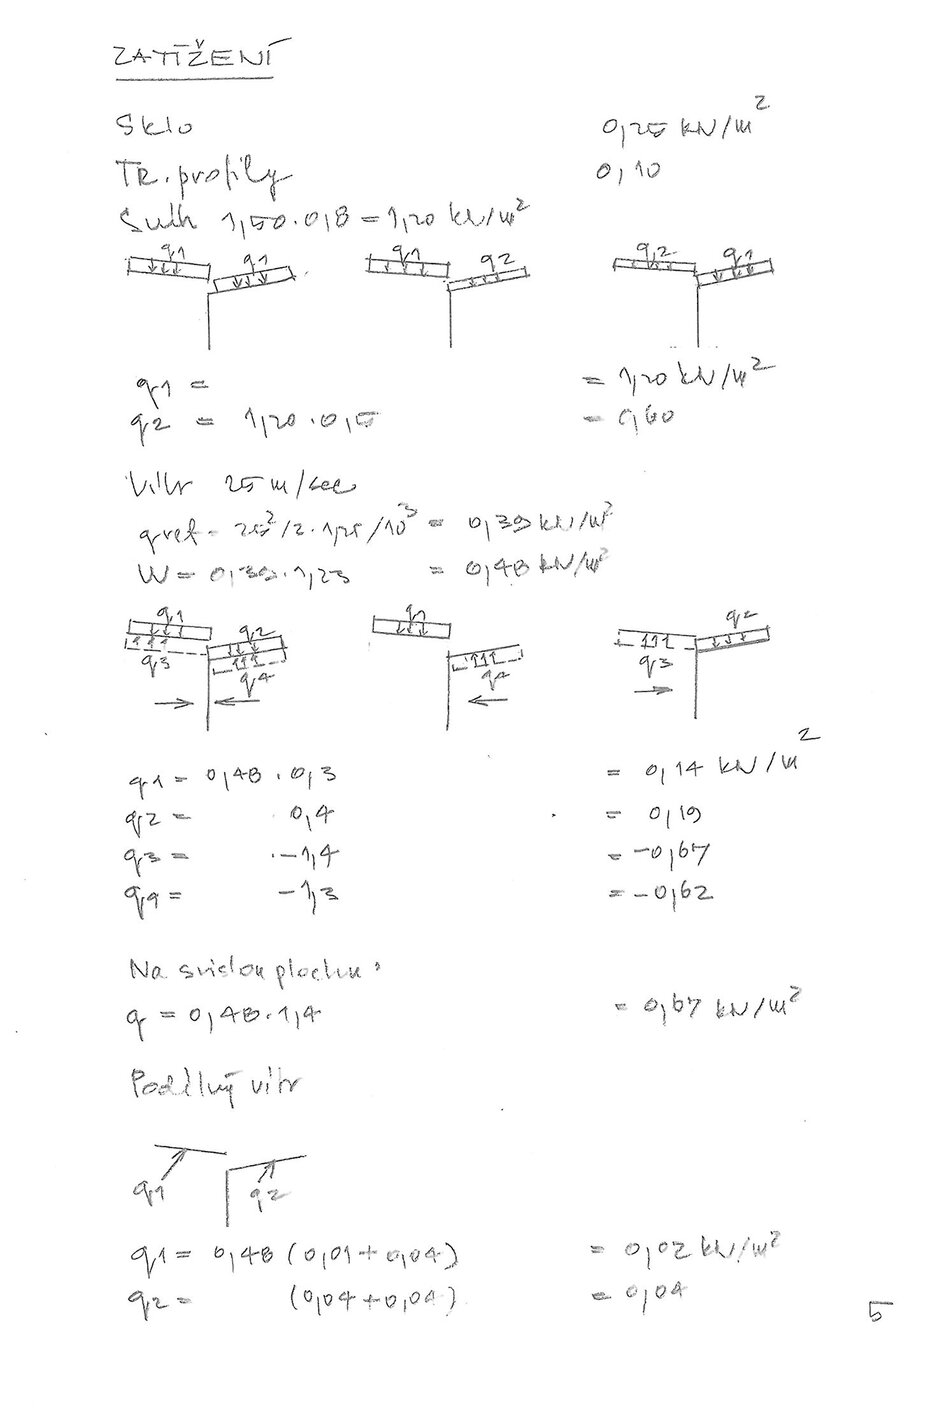 ZATÍŽENÍ
Sklo 0,25 kN/m²
Tr. profily 0,10
Sníh 1,50.0,8 = 1,20 kN/m²
q1 q1 q1 q2 q2 q1
q1 = = 1,20 kN/m²
q2 = 1,20 . 0,5 = 0,60
Vítr 25 m/sec
qref = 25²/2.1,25/10³ = 0,39 kN/m²
W = 0,39.1,23 = 0,48 kN/m²
q1 q2 q1 q2
q3 q4 q4 q3
q1 = 0,48 . 0,3 = 0,14 kN/m²
q2 = 0,4 = 0,19
q3 = .-1,4 = -0,67
q4 = -1,3 = -0,62
Na svislou plochu:
q = 0,48.1,4 = 0,67 kN/m²
Podélný vítr
q1 q2
q1 = 0,48 (0,01+0,04) = 0,02 kN/m²
q2 = (0,04+0,04) = 0,04
5